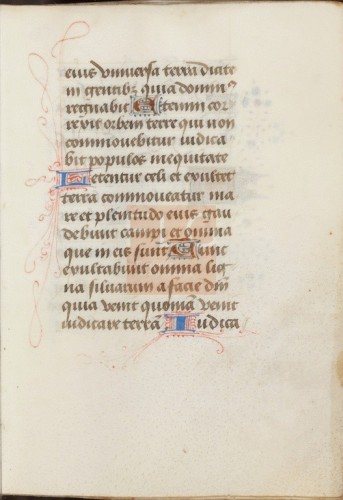 eius vniuersa terra dicite
in gentibz quia domin⁹
regnabit Etenim cor
rexit orbem terre qui non
commouebitur iudica
bit populos in equitate
Letentur celi et exultet
terra commoueatur ma
re et plenitudo eius gau
debunt campi et omnia
que in eis sunt Tunc
exultabunt omnia lig
na siluarum a facie dni
quia venit quoniā venit
iudicare terrā Iudica